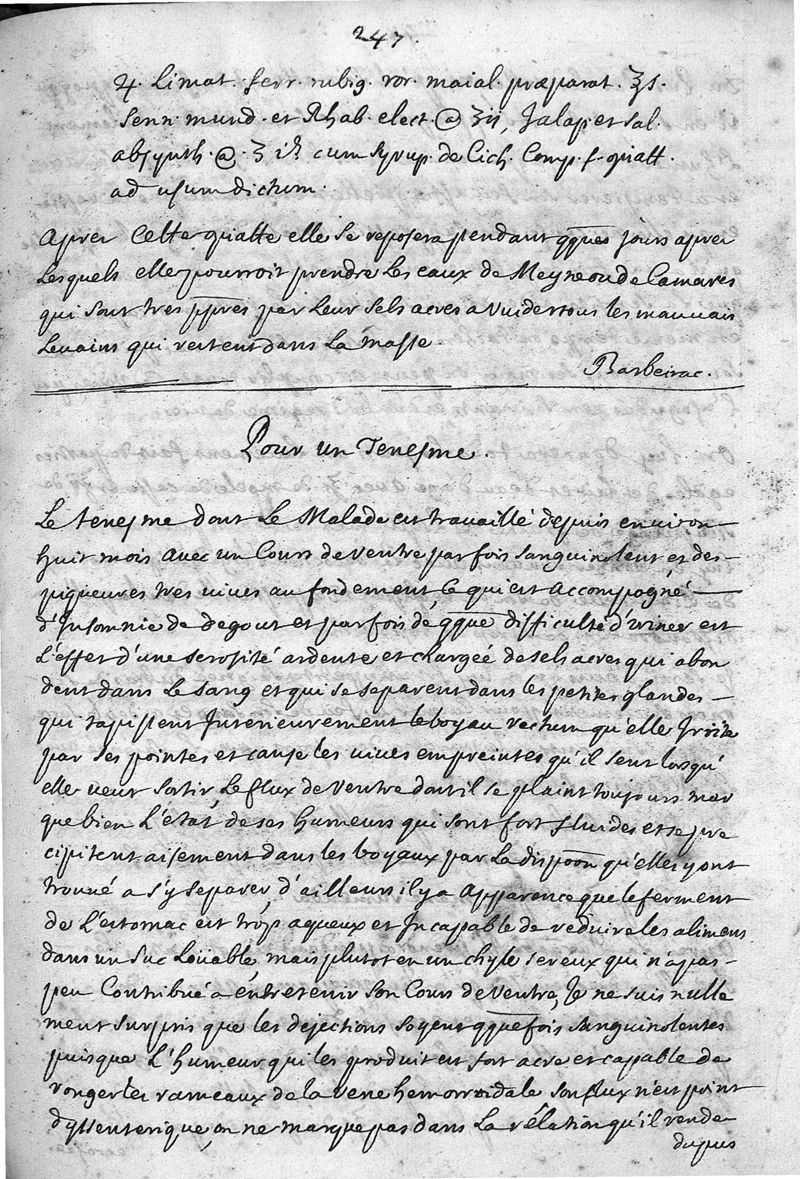 247.
♃. Limat. ferr. rubig. ror. maial. præparat. ʒs.
senn. mund. et Rhab. elect. @ ʒii, Jalap. et sal.
absynth. @. ʒiß cum syrup. de Cich. Comp. f. opiatt.
ad usum dictum.
Apres Cette opiatte elle se reposera pendant qques jours apres
Lesquels elle pourroit prendre Les eaux de Meyne ou de Camares
qui sont tres ppres par Leur sels acres a vuider tous les mauvais
Levains qui restent dans La masse.
Barbeirac.
Pour un Tenesme.
Le tenesme dont Le Malade est travaillé depuis environ
huit mois avec un Cours de ventre par fois sanguinolent et des
piqueures tres vives au fondement Ce qui est accompagné
d'Insomnie de degout et par fois de qque difficulté d'uriner est
L'effet d'une serosité ardente et chargée de sels acres qui abon
dent dans Le sang et qui se separent dans les petites glandes
qui tapissent Interieurement le boyau rectum qu'elle Irrite
par ses pointes et cause les vives empreintes qu'il sent lorsqu'
elle veut sortir, Le flux de ventre dont il se plaint toujours mar
que bien L'état de ses humeurs qui sont fort fluides et se pre
cipitent aisement dans les boyaux par La dispoon qu'elles y ont
trouvé a s'y separer, d'ailleurs il y a apparence que le ferment
de L'estomac est trop aqueux et Incapable de reduire les alimens
dans un suc Loüable mais plutot en un chyle sereux qui n'a pas
peu Contribué a entretenir son Cours de ventre, Je ne suis nulle
ment surpris que les dejections soyent qquefois sanguinolentes
puisque L'humeur qui les produit est fort acre et capable de
ronger les rameaux de la vene hemorroidale son flux n'est point
dyssenterique, on ne marque pas dans La rélation qu'il rende
dupus